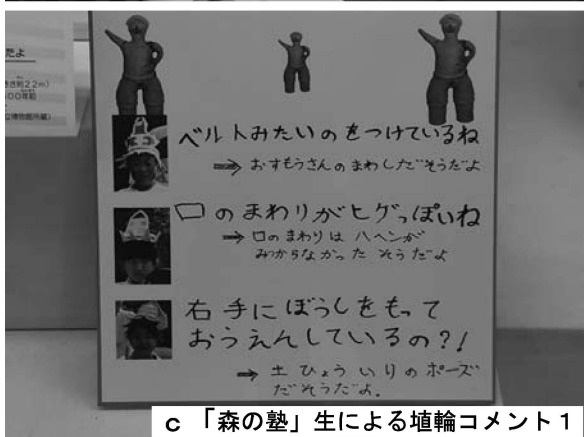 だよ
さ約22m)
00年前
立博物館所蔵)
ベルトみたいのをつけているね
⇒ おすもうさんのまわしだそうだよ
口のまわりがヒゲっぽいね
⇒ 口のまわりは ハヘンが
みからなかった そうだよ
右手にぼうしをもって
おうえんしているの?!
⇒ 土ひょういりのポーズ
だそうだよ。
c 「森の塾」生による埴輪コメント1